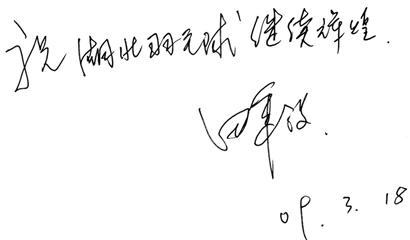 祝湖北羽毛球继续辉煌.
田秉毅.
09.3.18